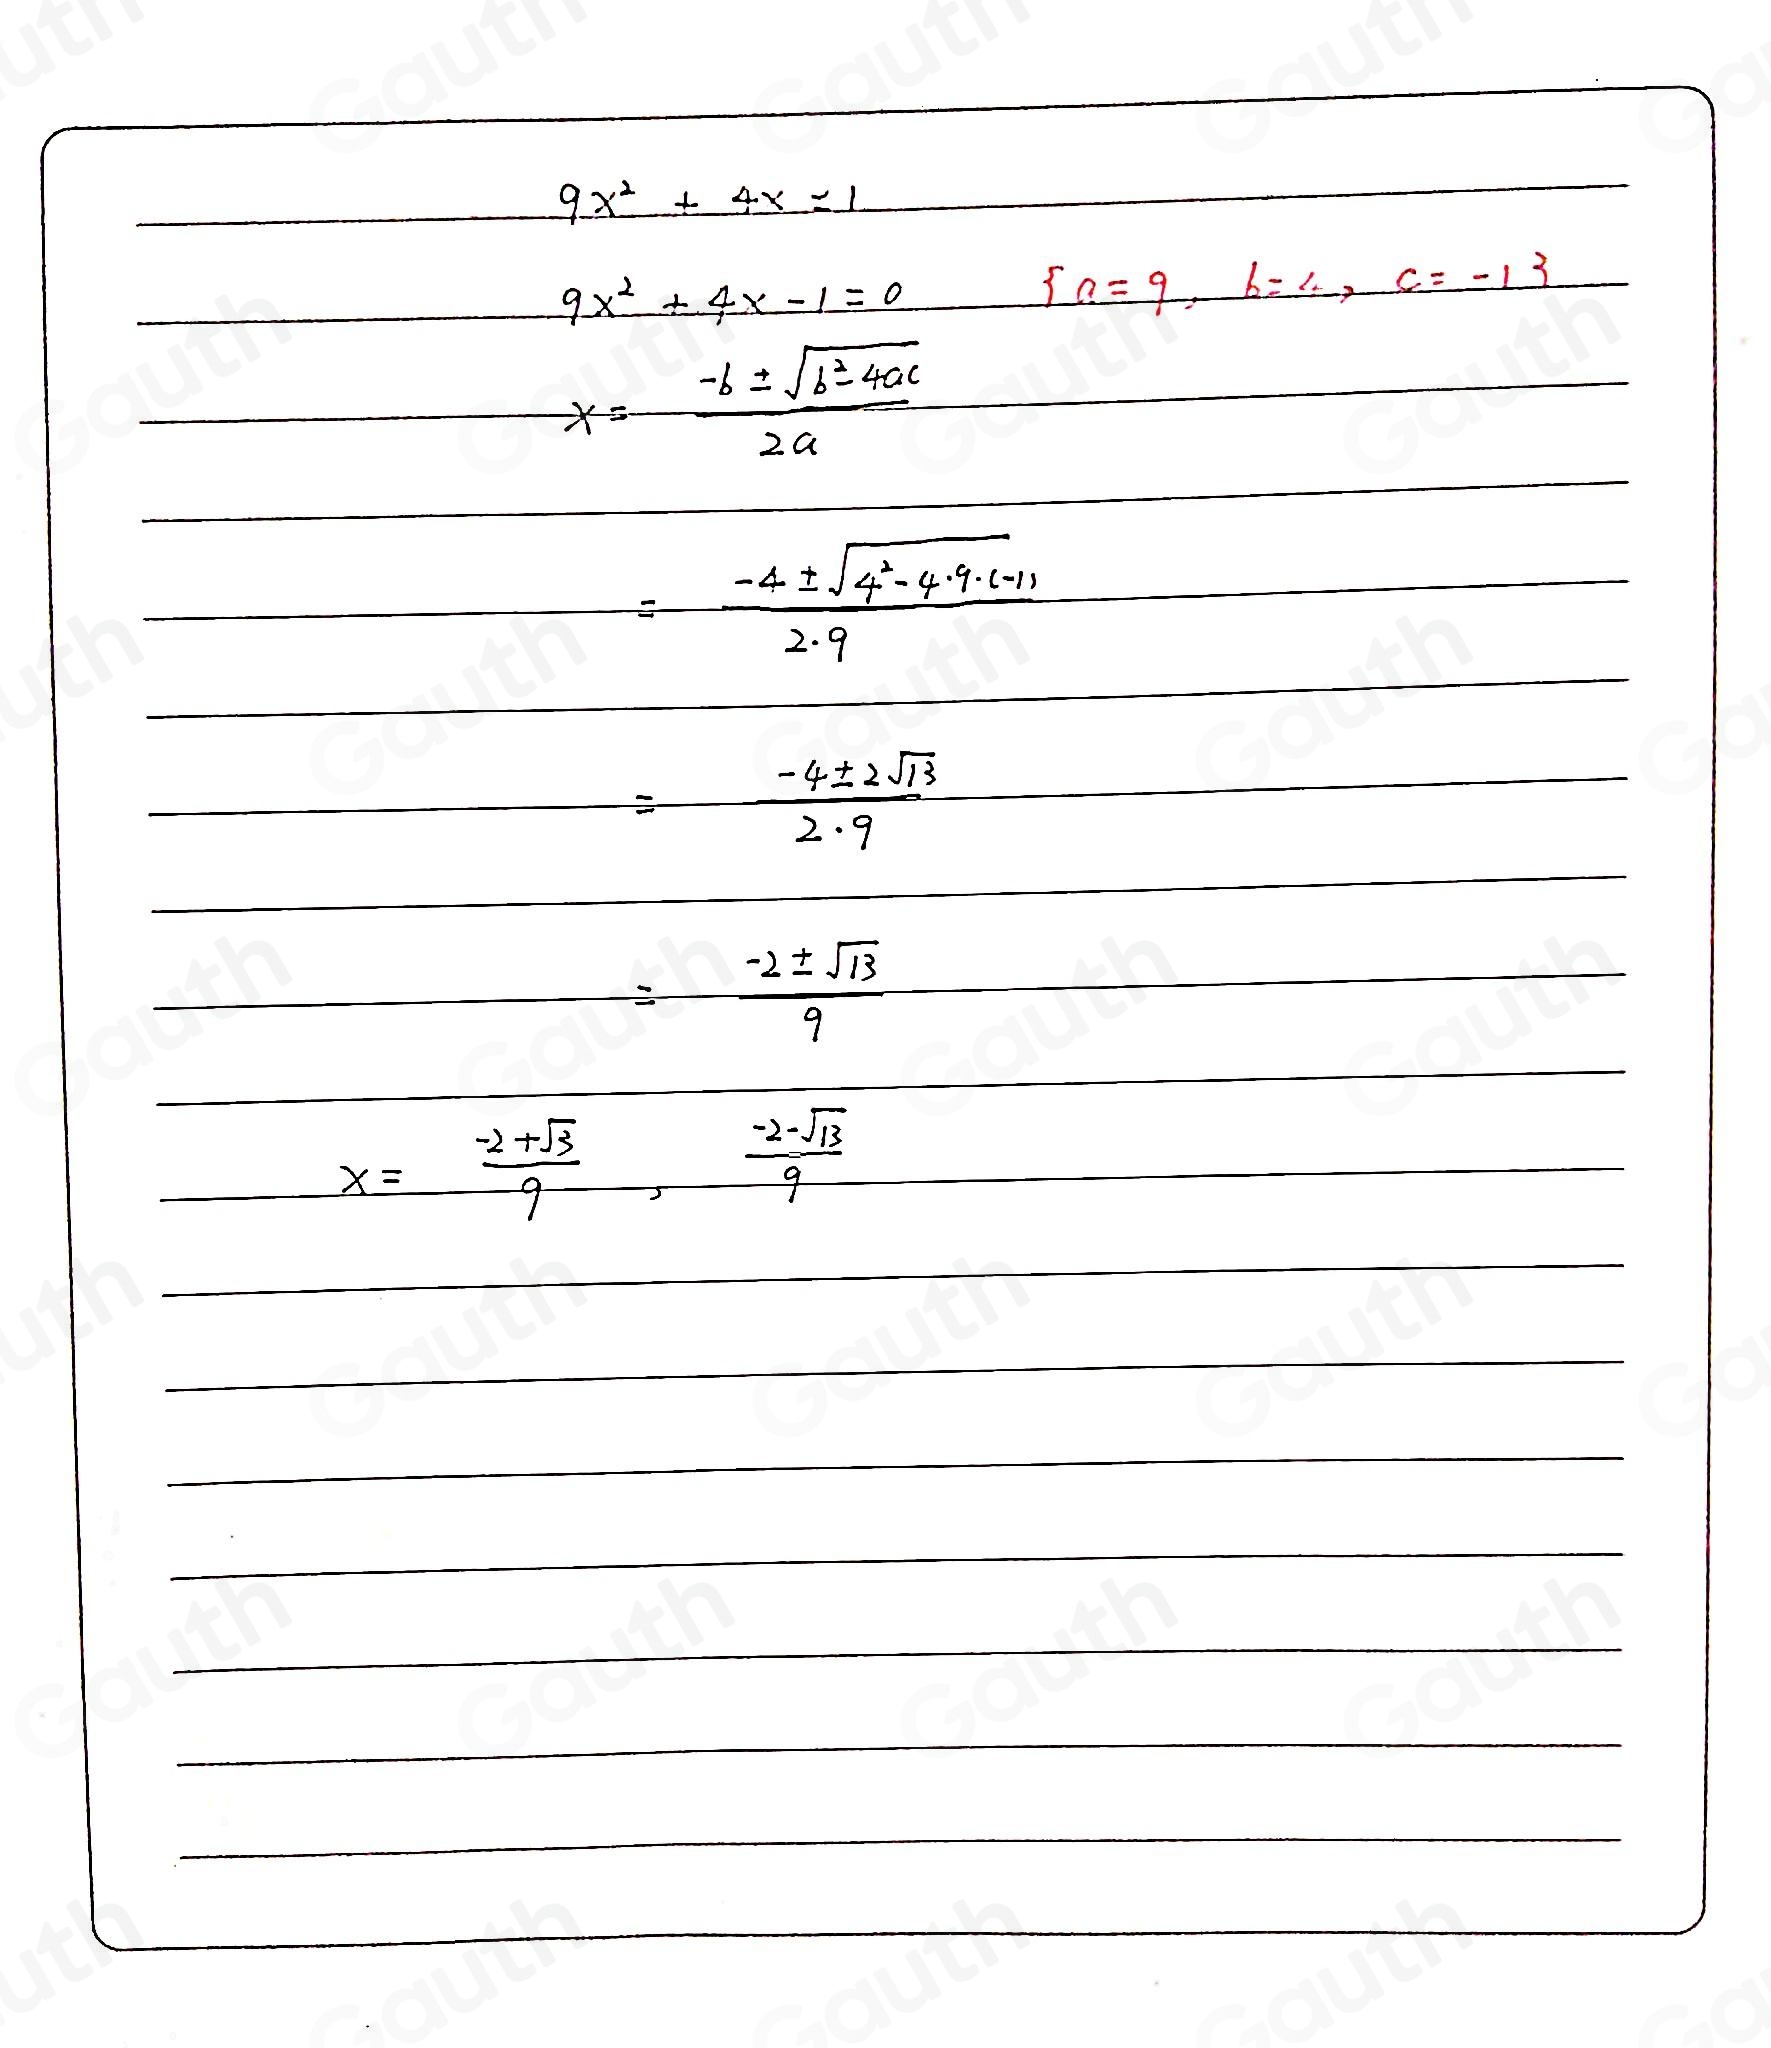 9x² + 4x = 1
9x² + 4x - 1 = 0 {a = 9, b = 4, c = -1}
x = (-b ± √(b² - 4ac)) / 2a
= (-4 ± √(4² - 4·9·(-1))) / 2·9
= (-4 ± 2√13) / 2·9
= (-2 ± √13) / 9
x = (-2 + √3) / 9 , (-2 - √13) / 9